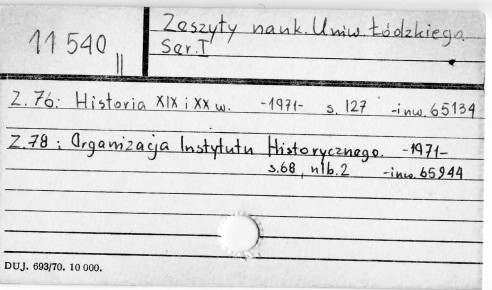 11 540 II
Zeszyty nauk. Uniw. Łódzkiego.
Ser. I
Z. 76: Historia XIX i XX w. -1971- s. 127 -inw. 65134
Z. 78: Organizacja Instytutu Historycznego. -1971-
s. 68, nlb. 2 -inw. 65944
DUJ. 693/70. 10 000.